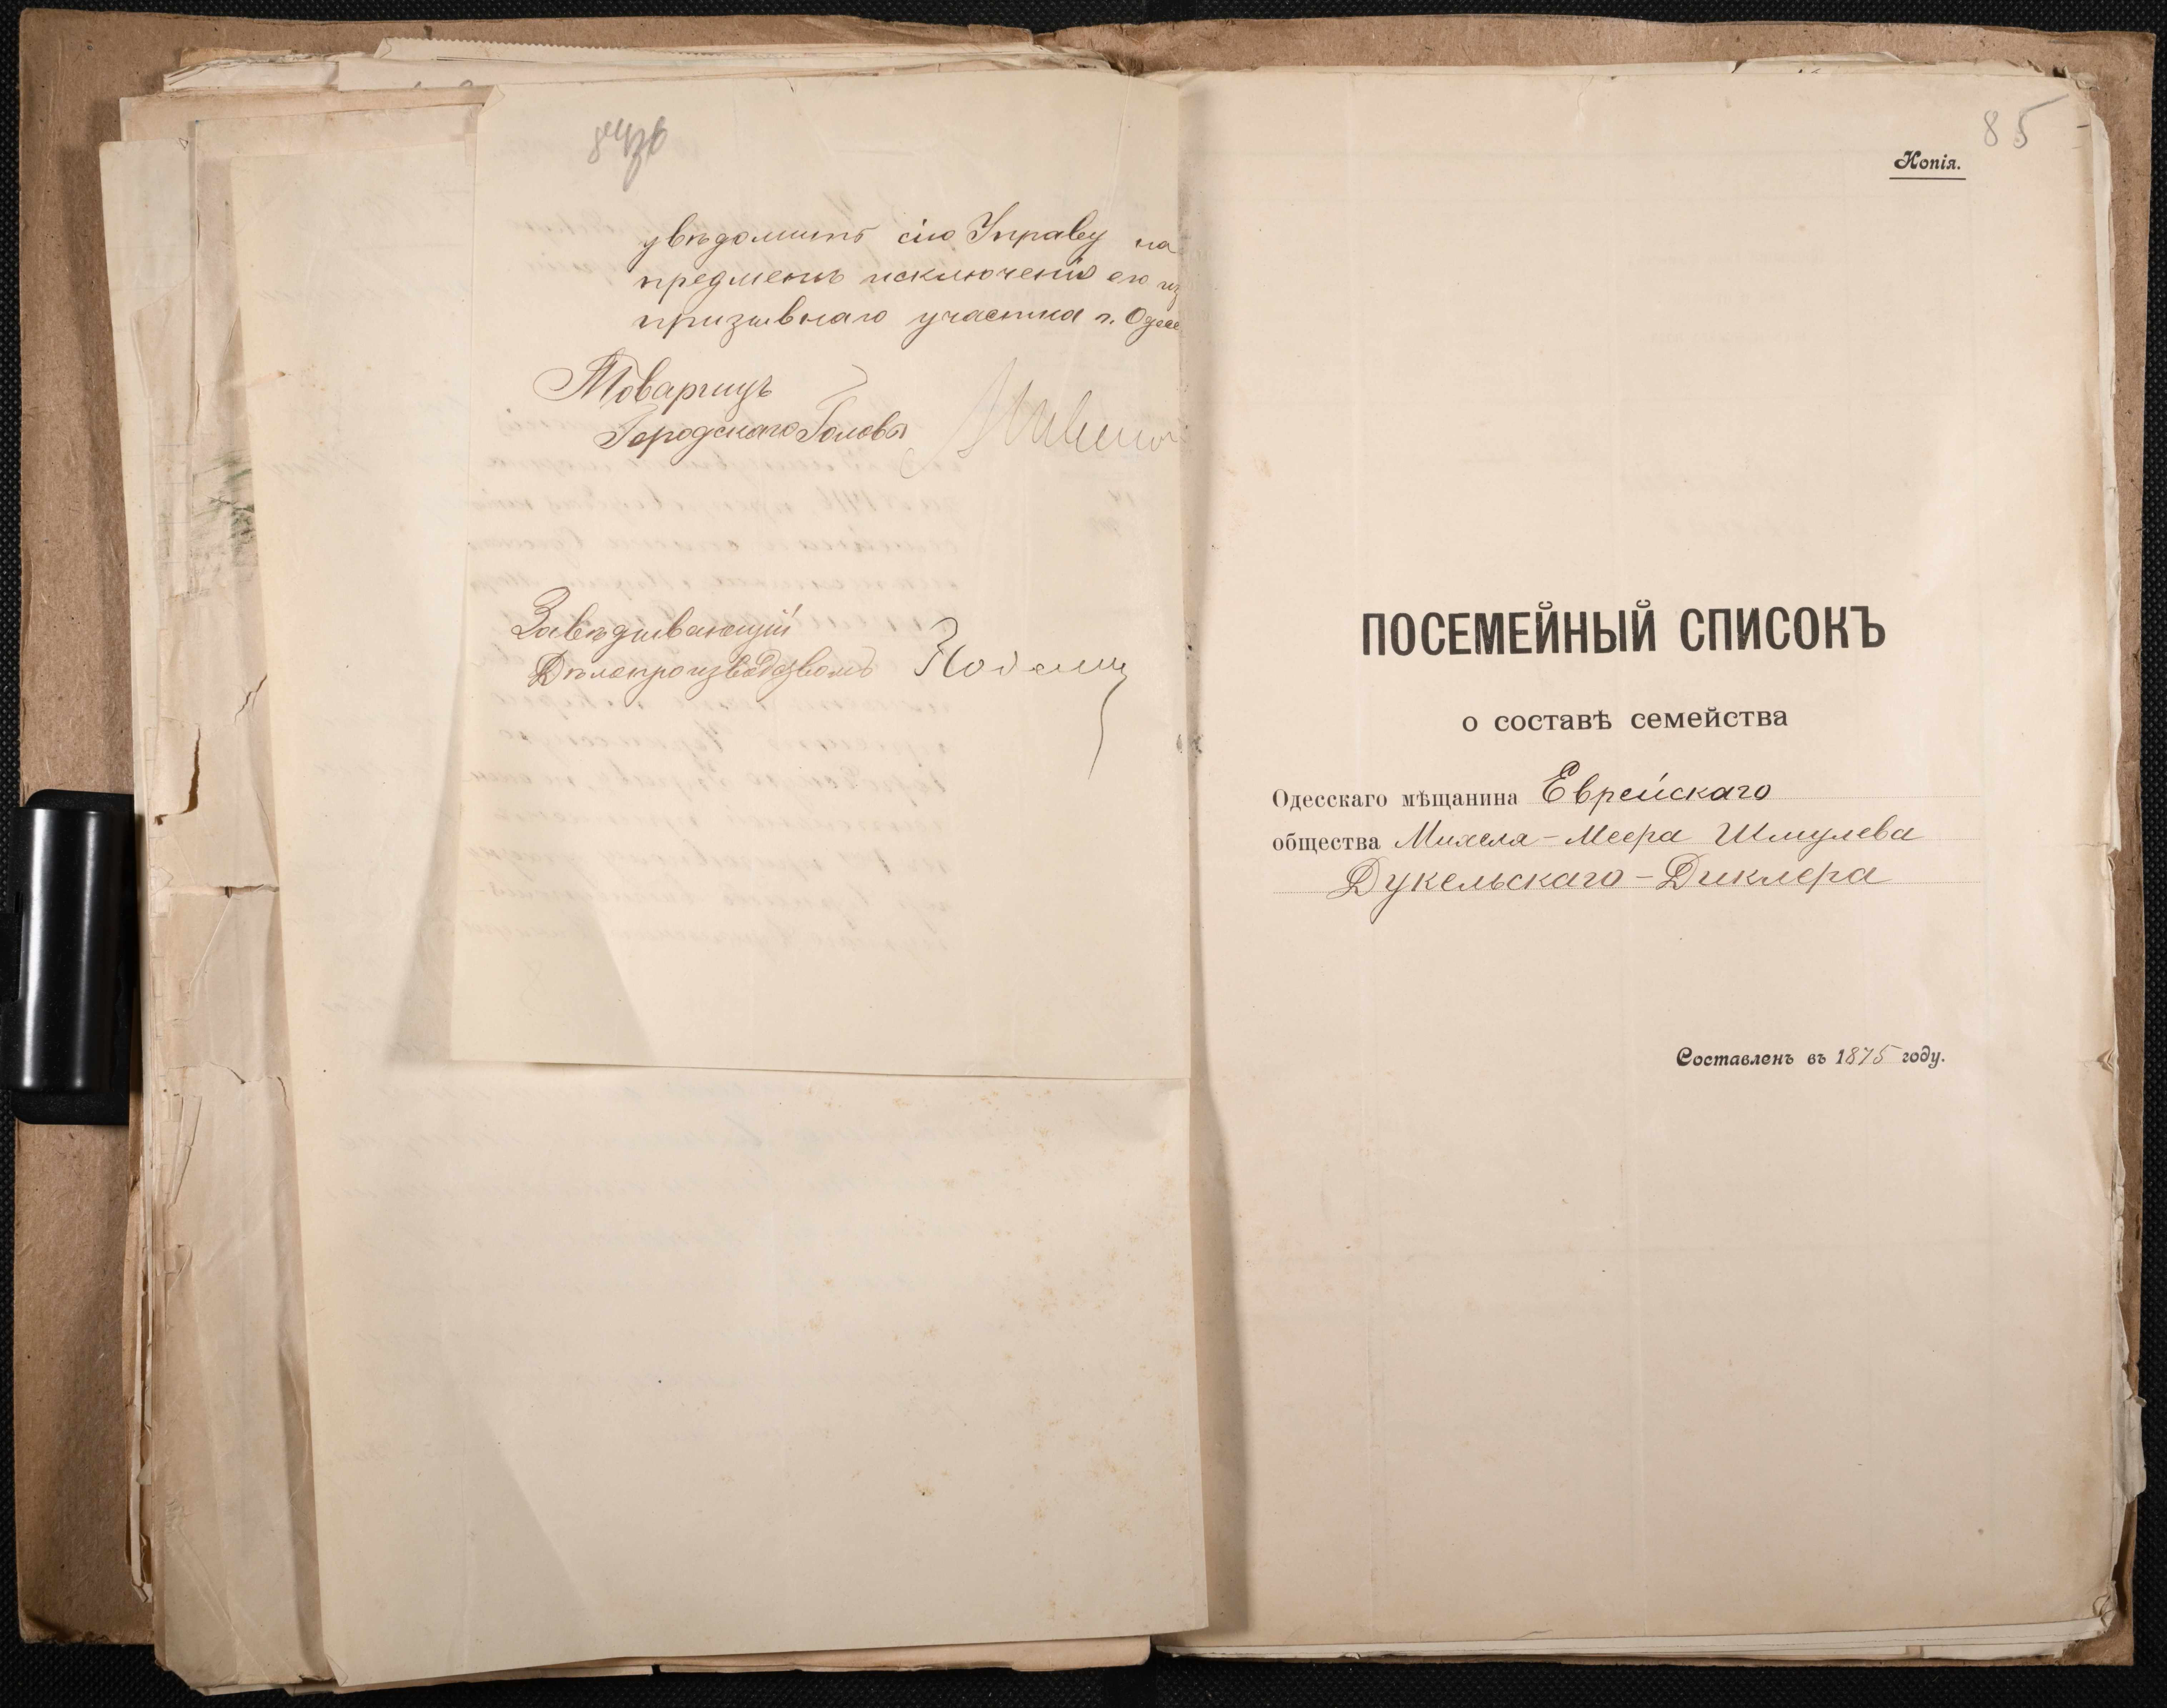 увѣдомить сію Управу на
предметъ исключенія его из
призывнаго участка г. Одесс
Товарищъ
Городского Головы
Завѣдывающій
Дѣлопроизводствомъ
85
Копія.
ПОСЕМЕЙНЫЙ СПИСОКЪ
о составѣ семейства
Одесскаго мѣщанина Еврейскаго
общества Михеля-Меера Шмулева
Дукельскаго-Диклера
Составленъ въ 1875 году.